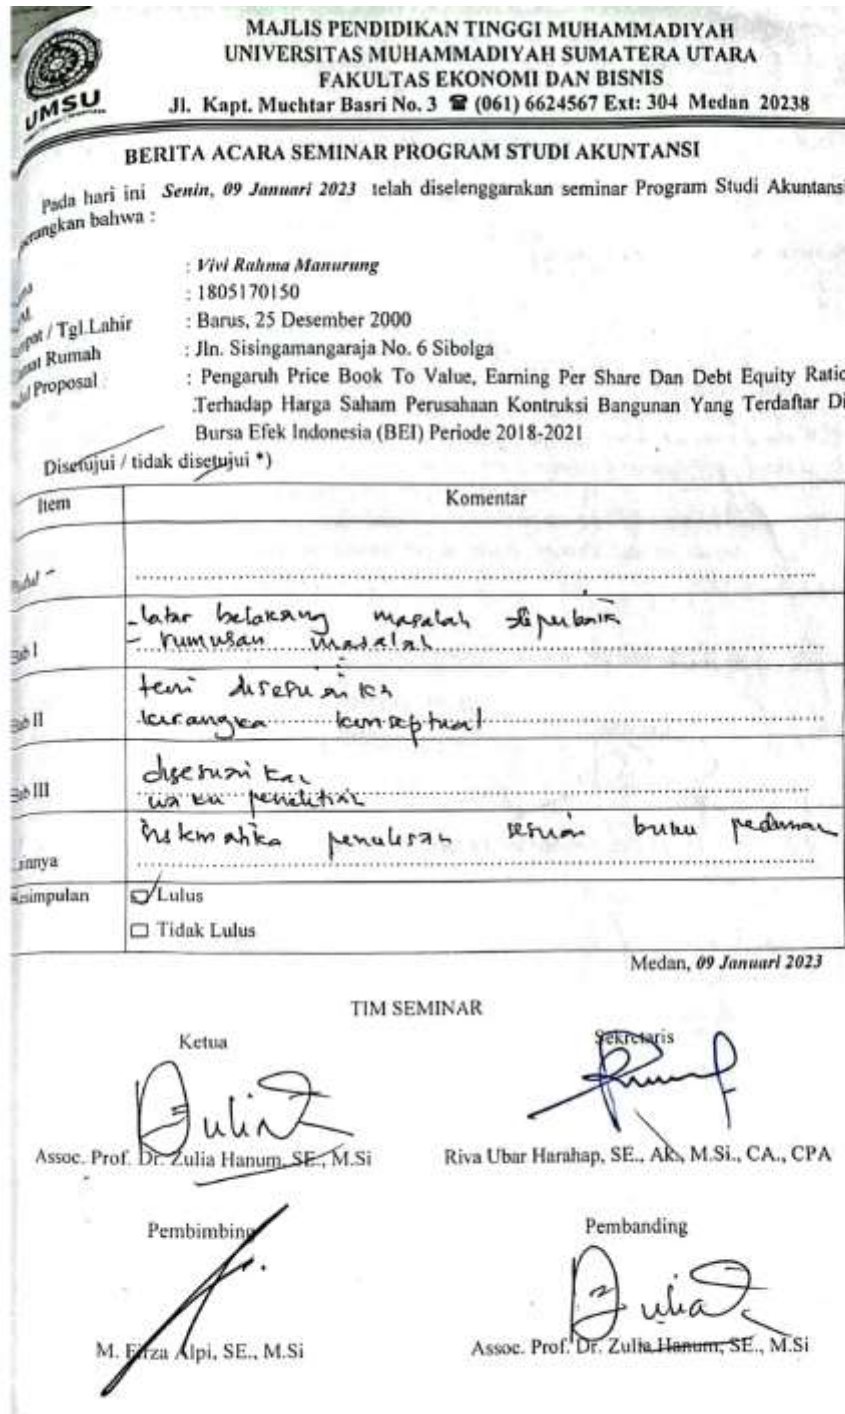 MAJLIS PENDIDIKAN TINGGI MUHAMMADIYAH
UNIVERSITAS MUHAMMADIYAH SUMATERA UTARA
FAKULTAS EKONOMI DAN BISNIS
Jl. Kapt. Muchtar Basri No. 3 ☎ (061) 6624567 Ext: 304 Medan 20238
UMSU
BERITA ACARA SEMINAR PROGRAM STUDI AKUNTANSI
Pada hari ini Senin, 09 Januari 2023 telah diselenggarakan seminar Program Studi Akuntansi
erangkan bahwa :
: Vivi Rahma Manurung
: 1805170150
/ Tgl.Lahir : Barus, 25 Desember 2000
Rumah : Jln. Sisingamangaraja No. 6 Sibolga
Proposal : Pengaruh Price Book To Value, Earning Per Share Dan Debt Equity Ratio
Terhadap Harga Saham Perusahaan Kontruksi Bangunan Yang Terdaftar Di
Bursa Efek Indonesia (BEI) Periode 2018-2021
Disetujui / tidak disetujui *)
Item Komentar
- latar belakang masalah diperbaiki
Bab I - rumusan masalah
teori disesuaikan
Bab II kerangka konseptual
disesuaikan
Bab III waktu penelitian
penulisan sesuai buku pedoman
innya
simpulan ☑ Lulus
☐ Tidak Lulus
Medan, 09 Januari 2023
TIM SEMINAR
Ketua Sekretaris
Assoc. Prof. Dr. Zulia Hanum, SE., M.Si Riva Ubar Harahap, SE., Ak., M.Si., CA., CPA
Pembimbing Pembanding
M. Firza Alpi, SE., M.Si Assoc. Prof. Dr. Zulia Hanum, SE., M.Si